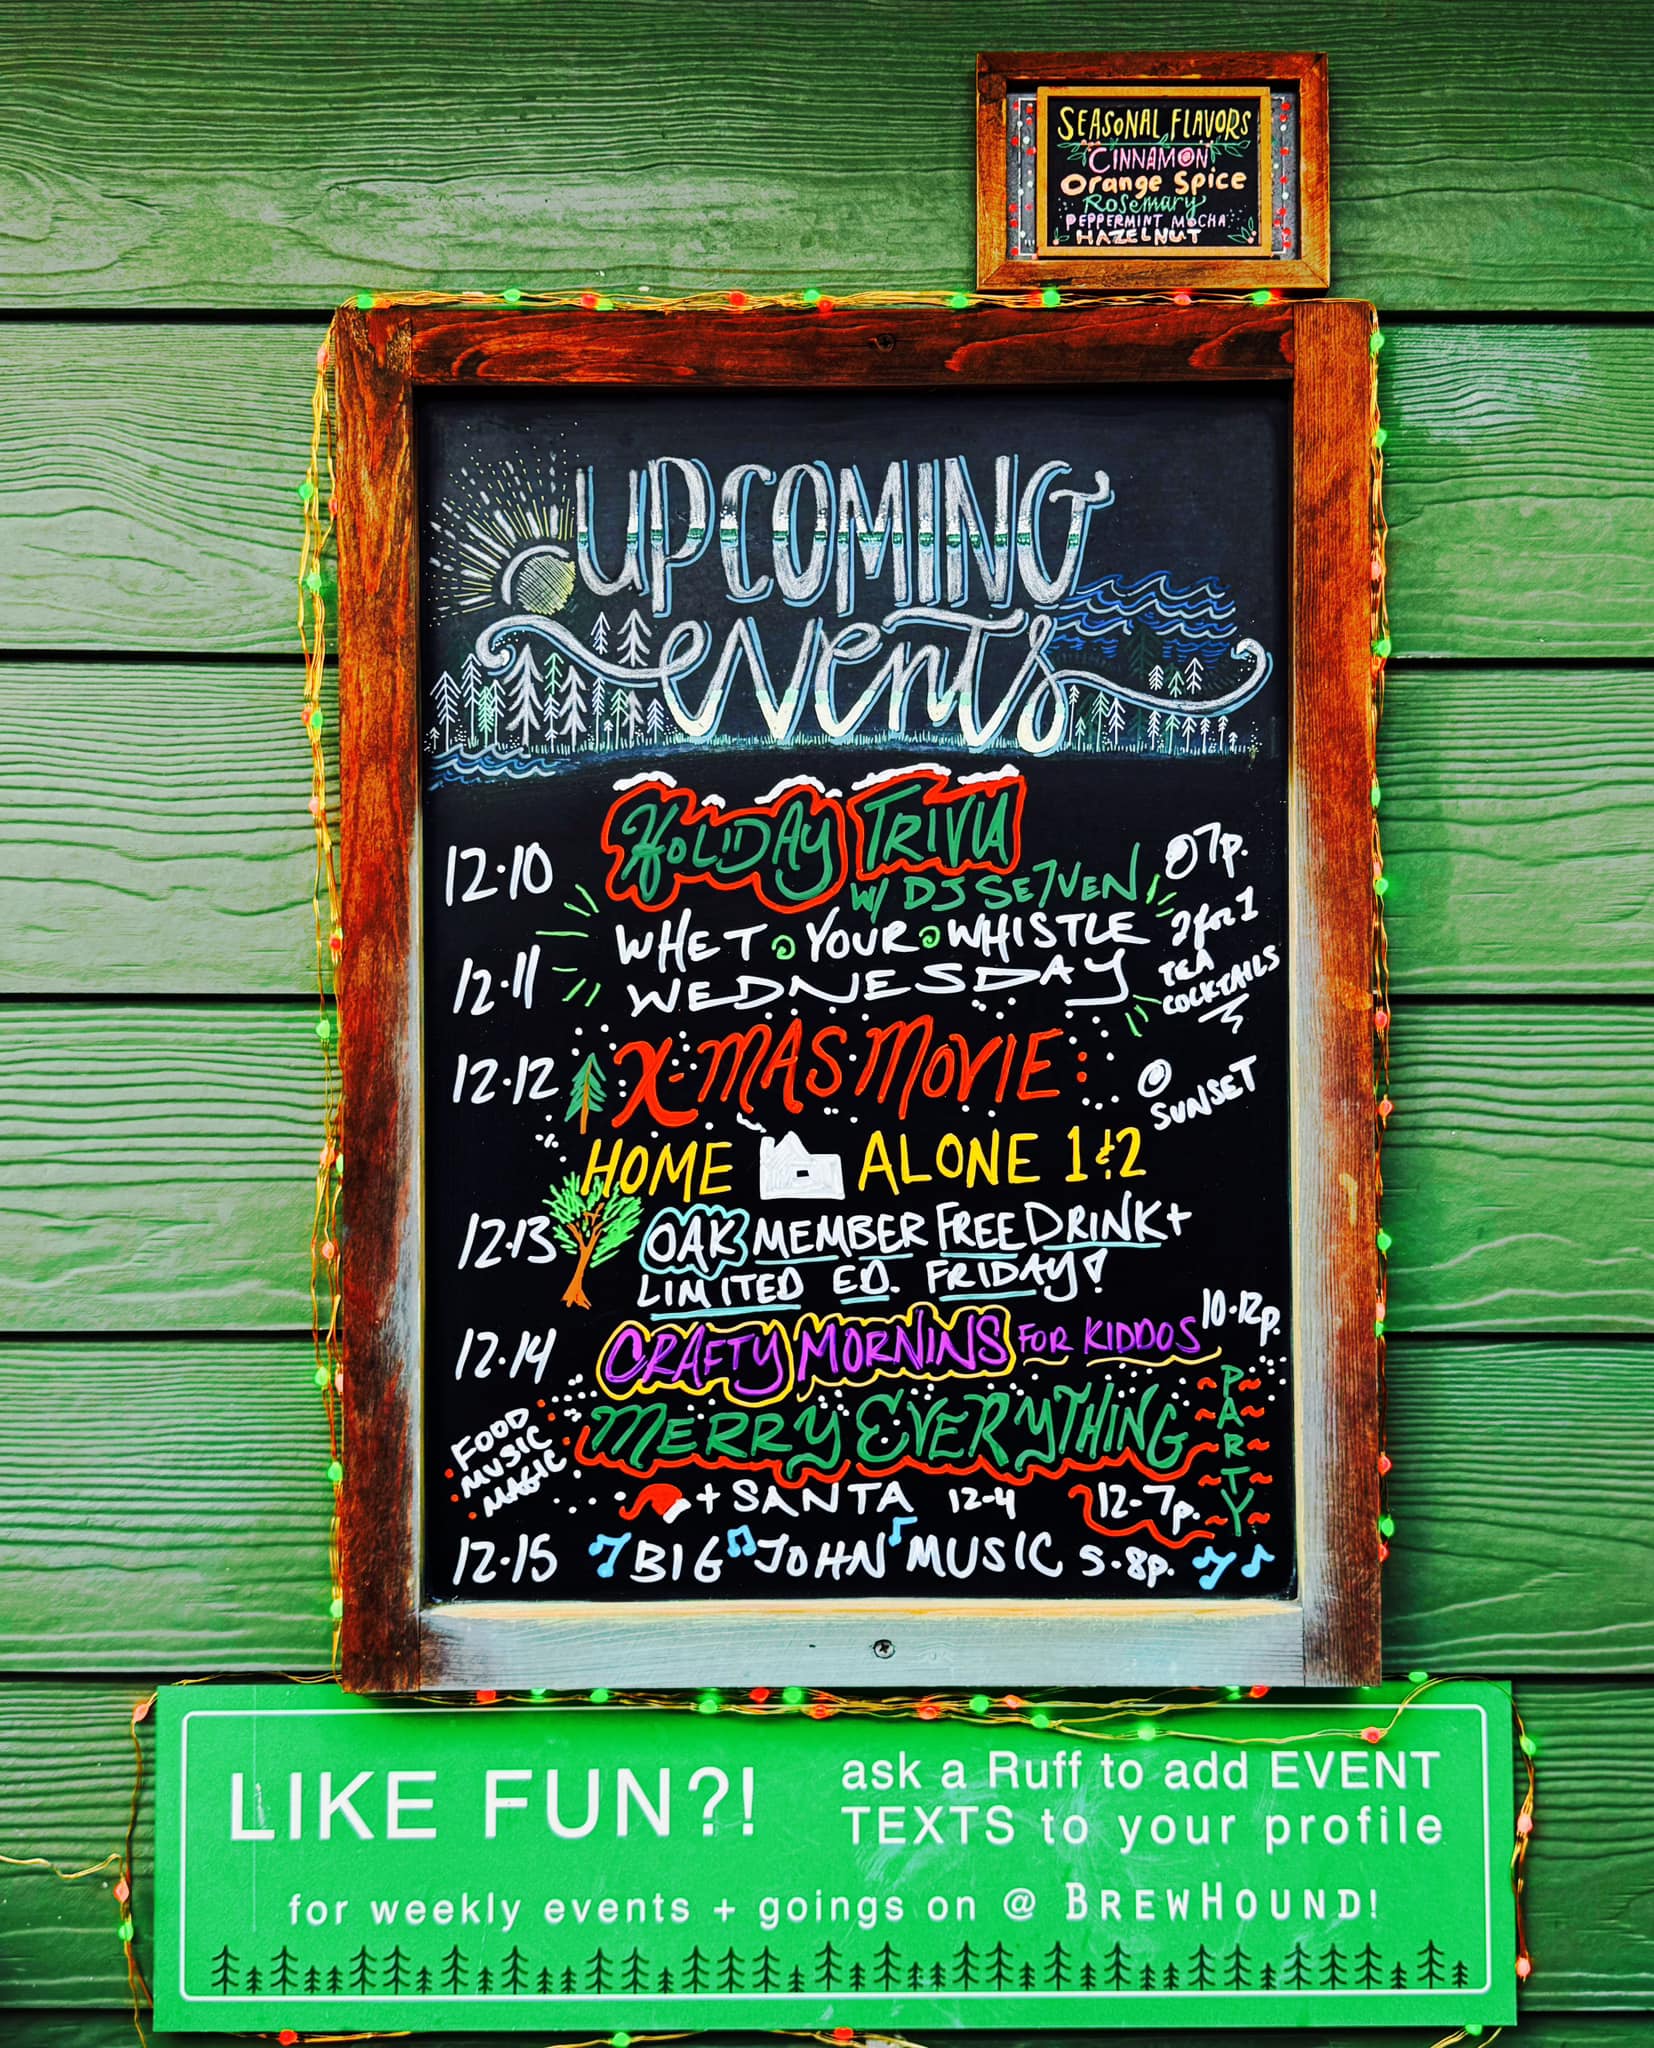 SEASONAL FLAVORS
CINNAMON
Orange Spice
Rosemary
PEPPERMINT MOCHA
HAZELNUT
UPCOMING
events
12.10 HOLIDAY TRIVIA @ 7p.
W/ DJ SE7VEN
12.11 WHET YOUR WHISTLE
WEDNESDAY
2 for 1
TEA
COCKTAILS
12.12 X-MAS MOVIE @
SUNSET
HOME ALONE 1 & 2
12.13 OAK MEMBER FREE DRINK +
LIMITED ED. FRIDAY!
12.14 CRAFTY MORNINS FOR KIDDOS 10-12p.
FOOD
MUSIC
MAGIC
MERRY EVERYTHING
PARTY
+ SANTA 12-4 12-7p.
12.15 BIG JOHN MUSIC 5-8p.
LIKE FUN?!
ask a Ruff to add EVENT
TEXTS to your profile
for weekly events + goings on @ BREWHOUND!